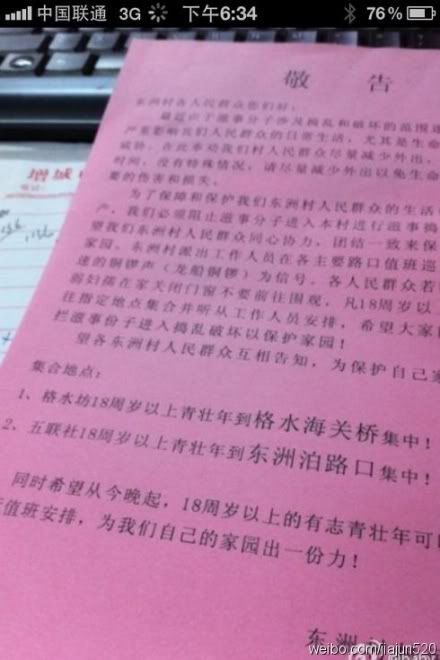 中国联通 3G 下午6:34 76%
敬 告
东洲村各人民群众您们好:
最近由于滋事分子涉及捣乱和破坏的范围
严重影响我们人民群众的日常生活,尤其是生命
威胁。在此奉劝我们村人民群众尽量减少外出,
时间,没有特殊情况,请尽量减少外出以免生命
要的伤害和损失。
为了保障和保护我们东洲村人民群众的生活
产,我们必须阻止滋事分子进入本村进行滋事捣
望我们东洲村人民群众同心协力,团结一致来保
家园。东洲村派出工作人员在各主要路口值班巡
速的铜锣声(龙船铜锣)为信号。各人民群众若
弱妇孺在家关闭门窗不要前往围观,凡18周岁以
往指定地点集合并听从工作人员安排,希望大家
拦滋事份子进入捣乱破坏以保护家园!
望各东洲村人民群众互相告知,为保护自己家
集合地点:
1、格水坊18周岁以上青壮年到格水海关桥集中!
2、五联社18周岁以上青壮年到东洲泊路口集中!
同时希望从今晚起,18周岁以上的有志青壮年可
值班安排,为我们自己的家园出一份力!
东洲
增城
weibo.com/jiajun520